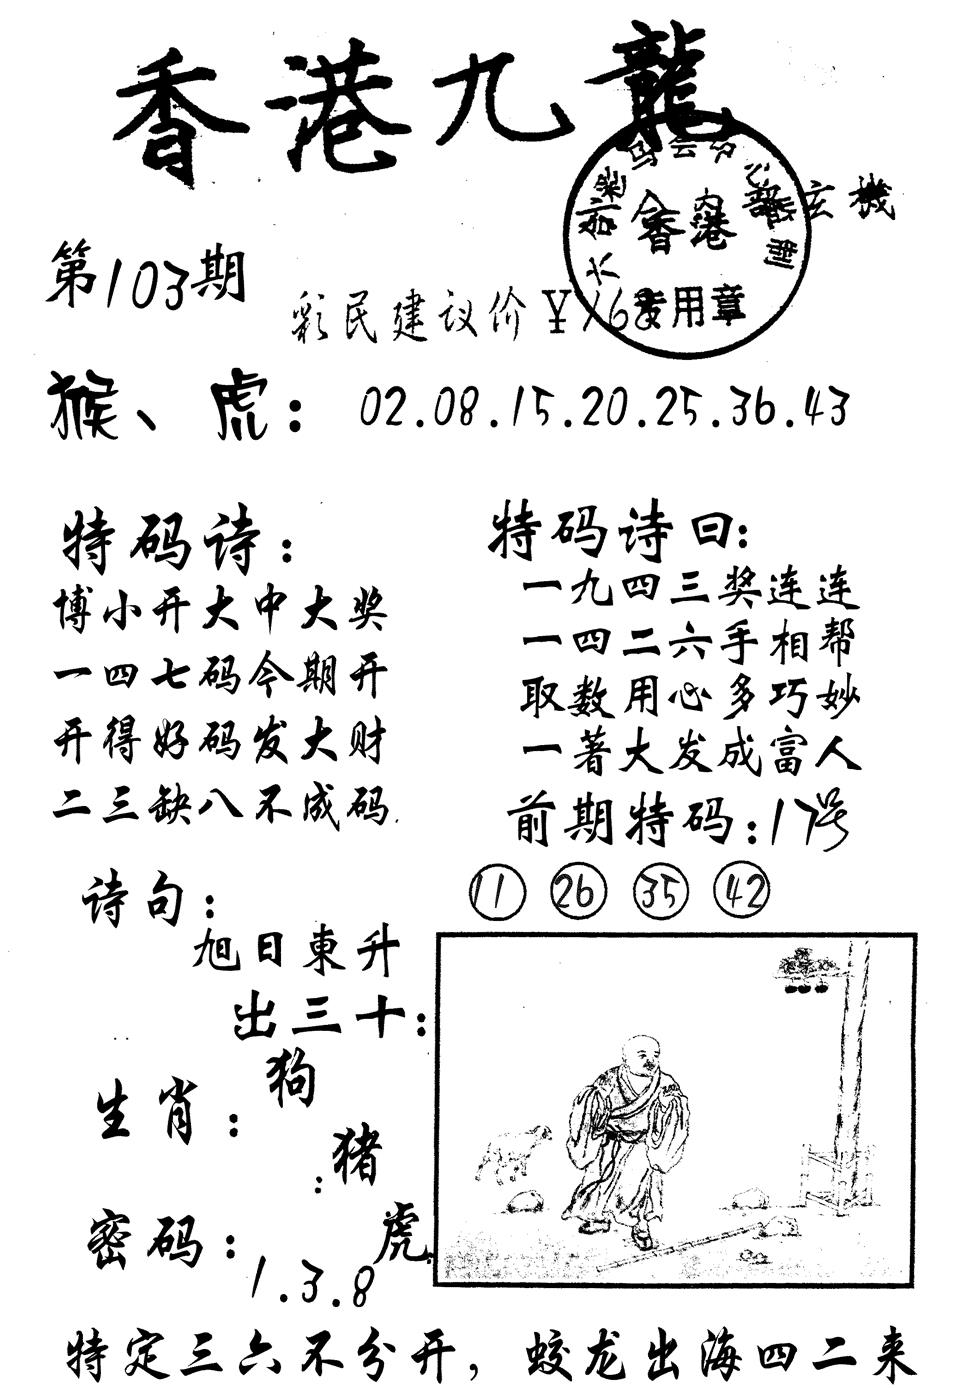 香港九龍
玄機
香港
专用章
第103期
彩民建议价¥168
猴、虎：02.08.15.20.25.36.43
特码诗：
博小开大中大奖
一四七码今期开
开得好码发大财
二三缺八不成码
特码诗曰：
一九四三奖连连
一四二六手相帮
取数用心多巧妙
一著大发成富人
前期特码：17号
11 26 35 42
诗句：
旭日東升
出三十：
生肖：狗
：猪
虎
密码：1.3.8
特定三六不分开，蛟龙出海四二来